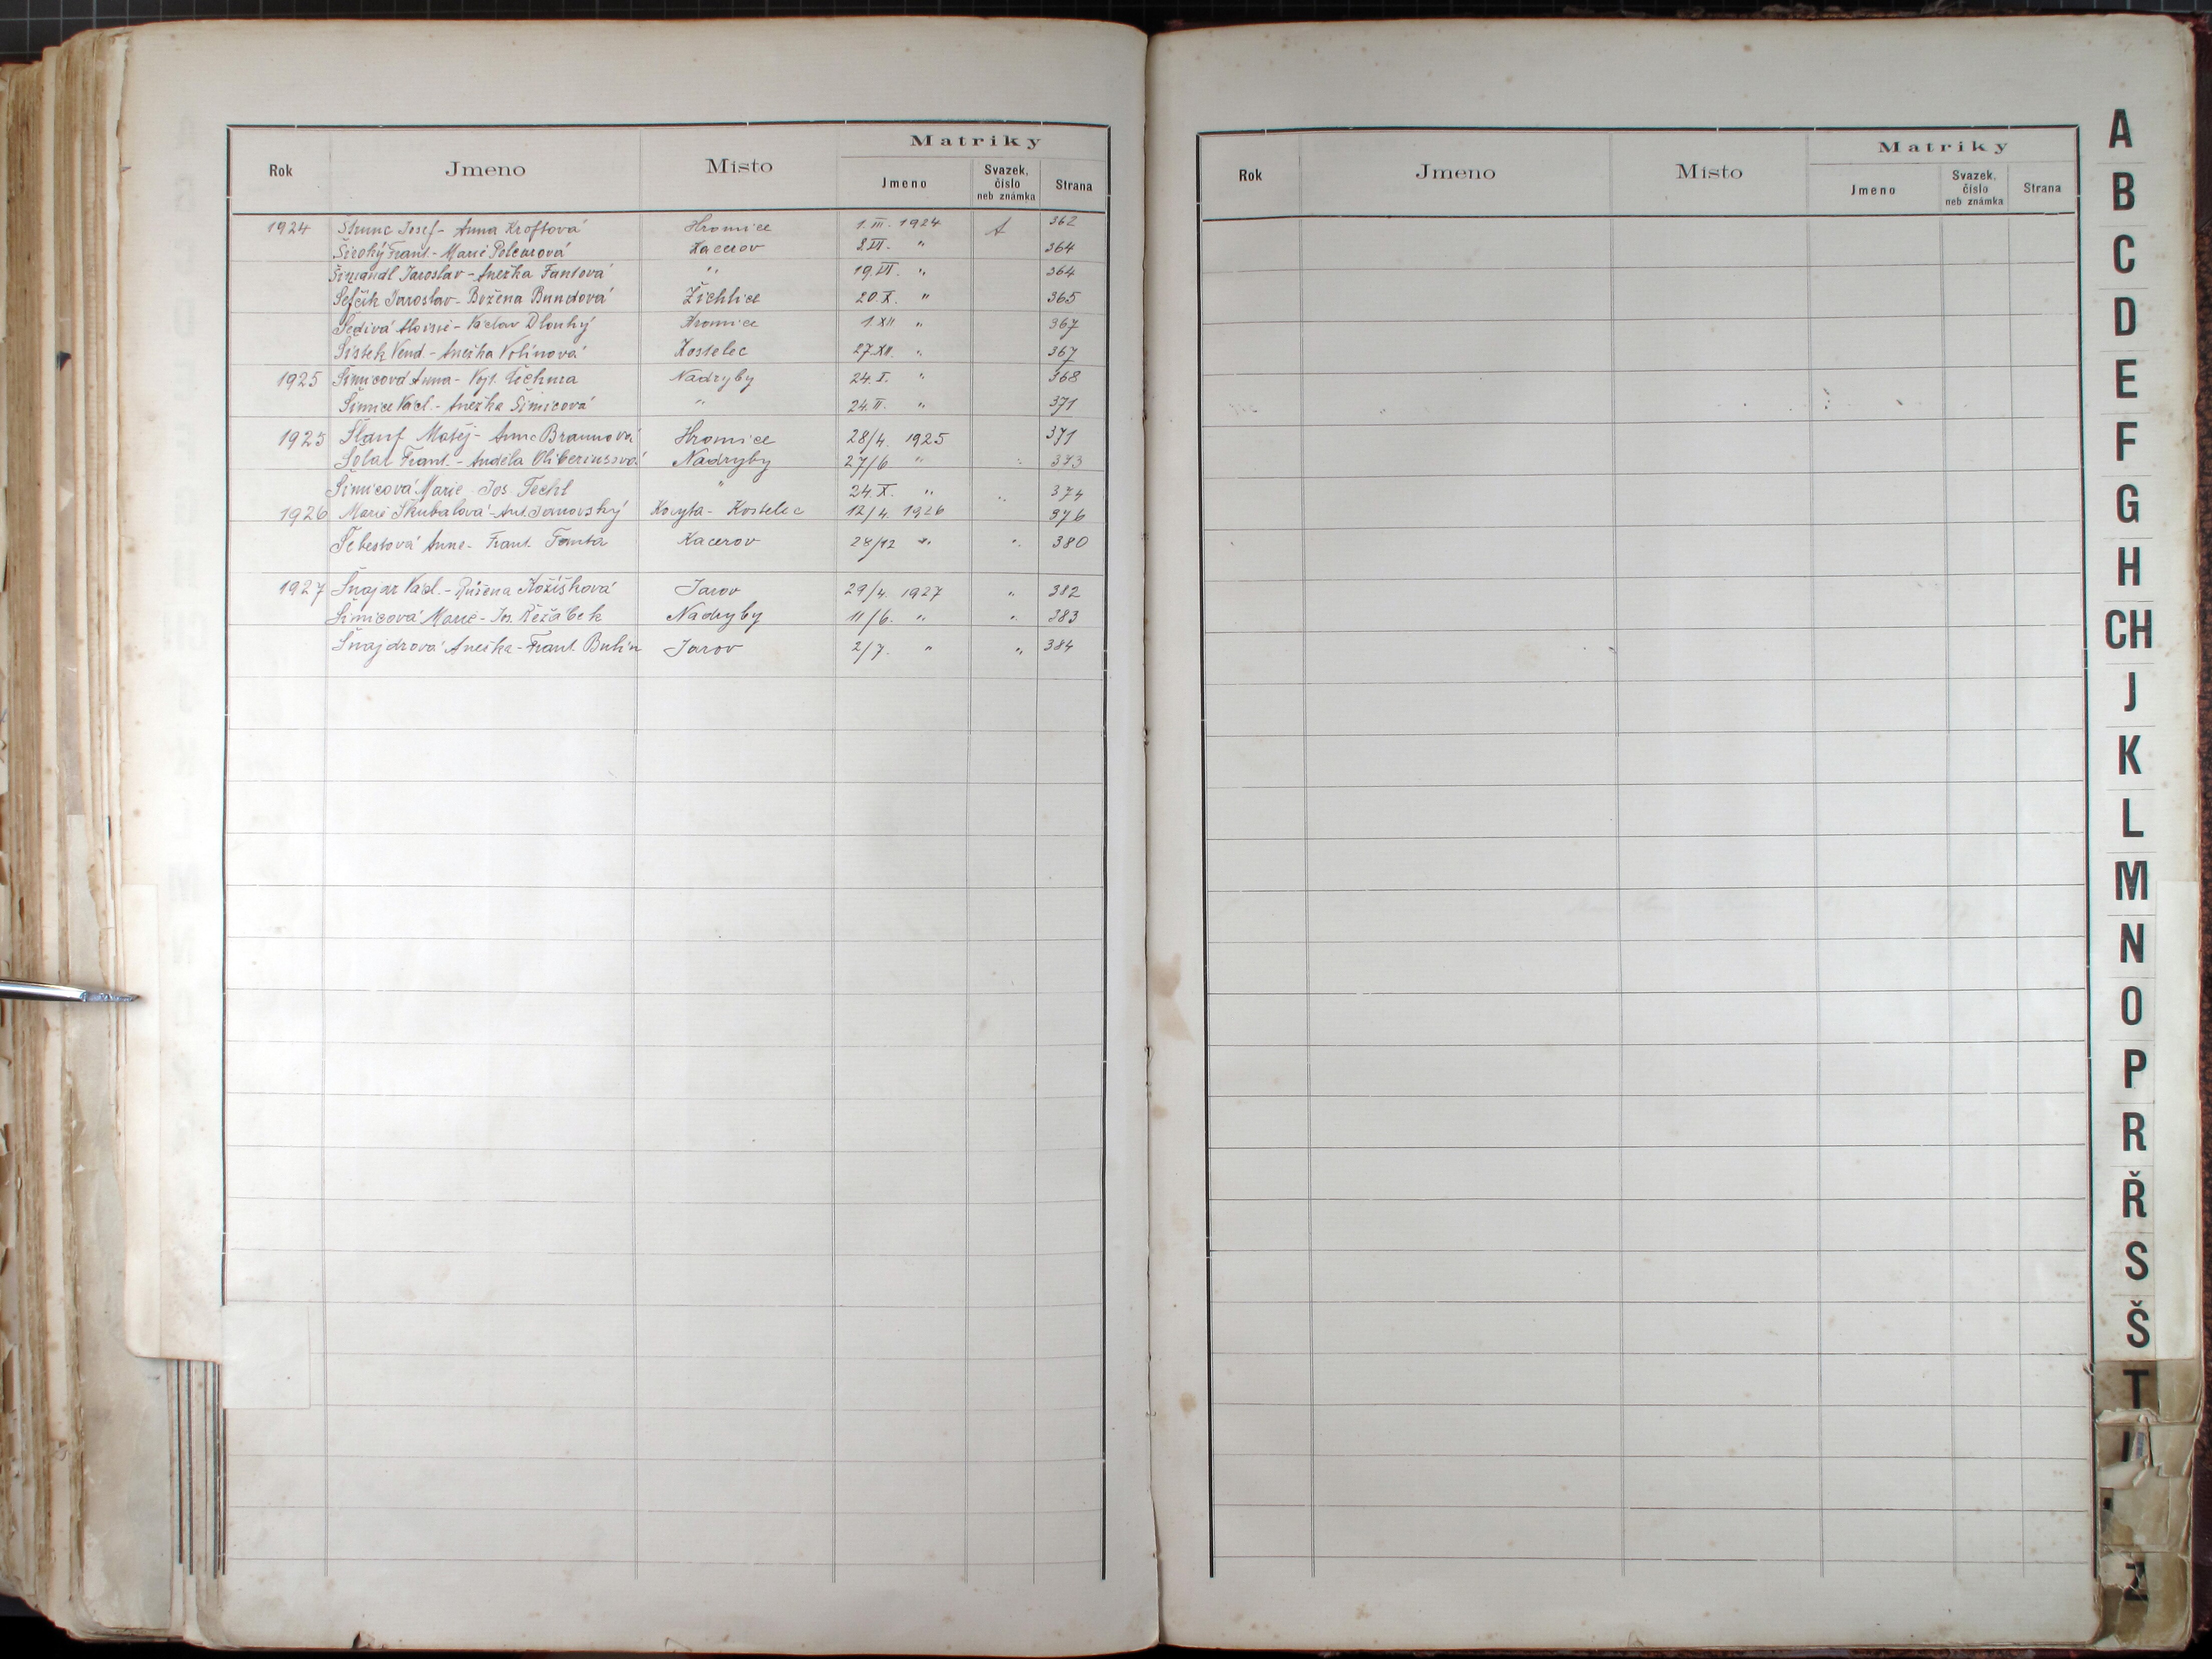 Rok Jmeno Místo Matriky
Jmeno Svazek, číslo neb známka Strana
1924 Škunc Josef - Anna Kroftová Hromice 1.III. 1924 A 362
Široký Frant. - Marie Polcarová Kacerov 8.VI. " 364
Šimandl Jaroslav - Anežka Fantová " 19.VI. " 364
Šefčik Jaroslav - Božena Bundová Žichlice 20.X. " 365
Šedivá Aloisie - Václav Dlouhý Hromice 1.XII " 367
Šistek Vend. - Anežka Volínová Kostelec 27.XII. " 367
1925 Šimicová Anna - Vojt. Nadryby 24.I. " 368
Šimice Václ. - Anežka Šimicová " 24.II. " 371
1925 Štauf Matěj - Anna Braunová Hromice 28/4. 1925 371
Šolar Frant. - Anděla Oliberiusová Nadryby 27/6 " " 373
Šimicová Marie Jos. Techl " 24.X. " " 374
1926 Marie Škubalová - Ant. Janovský Kocyta - Kostelec 12/4. 1926 376
Šebestová Anna - Frant. Fanta Kacerov 28/12 " " 380
1927 Šnajdr Václ. - Růžena Kožíšková Jarov 29/4. 1927 " 382
Šimicová Marie - Jos. Řežábek Nadryby 11/6. " " 383
Šnajdrová Anežka - Frant. Jarov 2/7. " " 384
Rok Jmeno Místo Matriky
Jmeno Svazek, číslo neb známka Strana
A
B
C
D
E
F
G
H
CH
J
K
L
M
N
O
P
R
Ř
S
Š
T